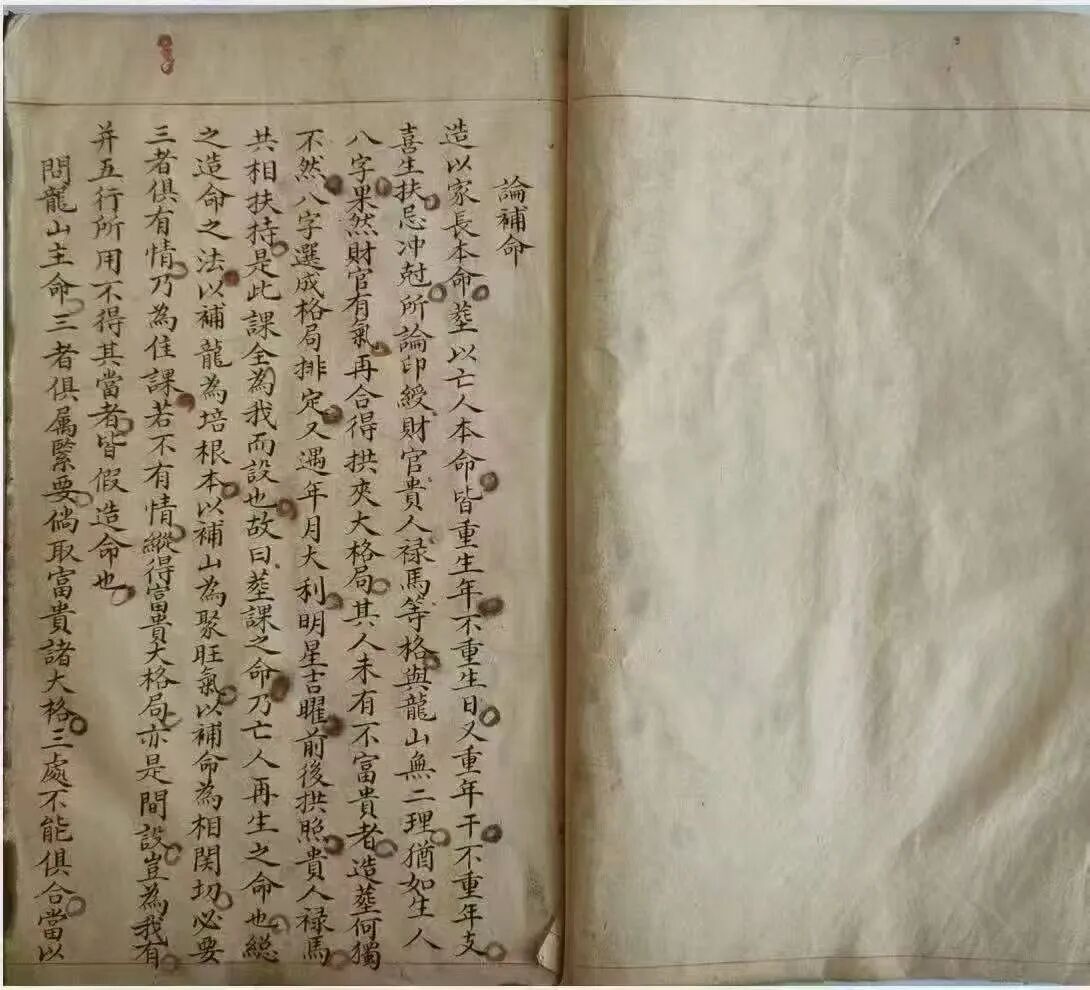 論補命
造以家長本命塟以亡人本命皆重生年不重生日又重年干不重年支
喜生扶忌冲尅所論印綬財官貴人禄馬等格與龍山無二理猶如生人
八字果然財官有氣再合得拱夾大格局其人未有不富貴者造塟何獨
不然八字選成格局排定又遇年月大利明星吉曜前後拱照貴人禄馬
共相扶持是此課全為我而設也故曰塟課之命乃亡人再生之命也総
之造命之法以補龍為培根本以補山為聚旺氣以補命為相関切必要
三者俱有情乃為佳課若不有情縱得富貴大格局亦是間設豈為我有
并五行所用不得其當者皆假造命也
問龍山主命三者俱属緊要倘取富貴諸大格三處不能俱合當以